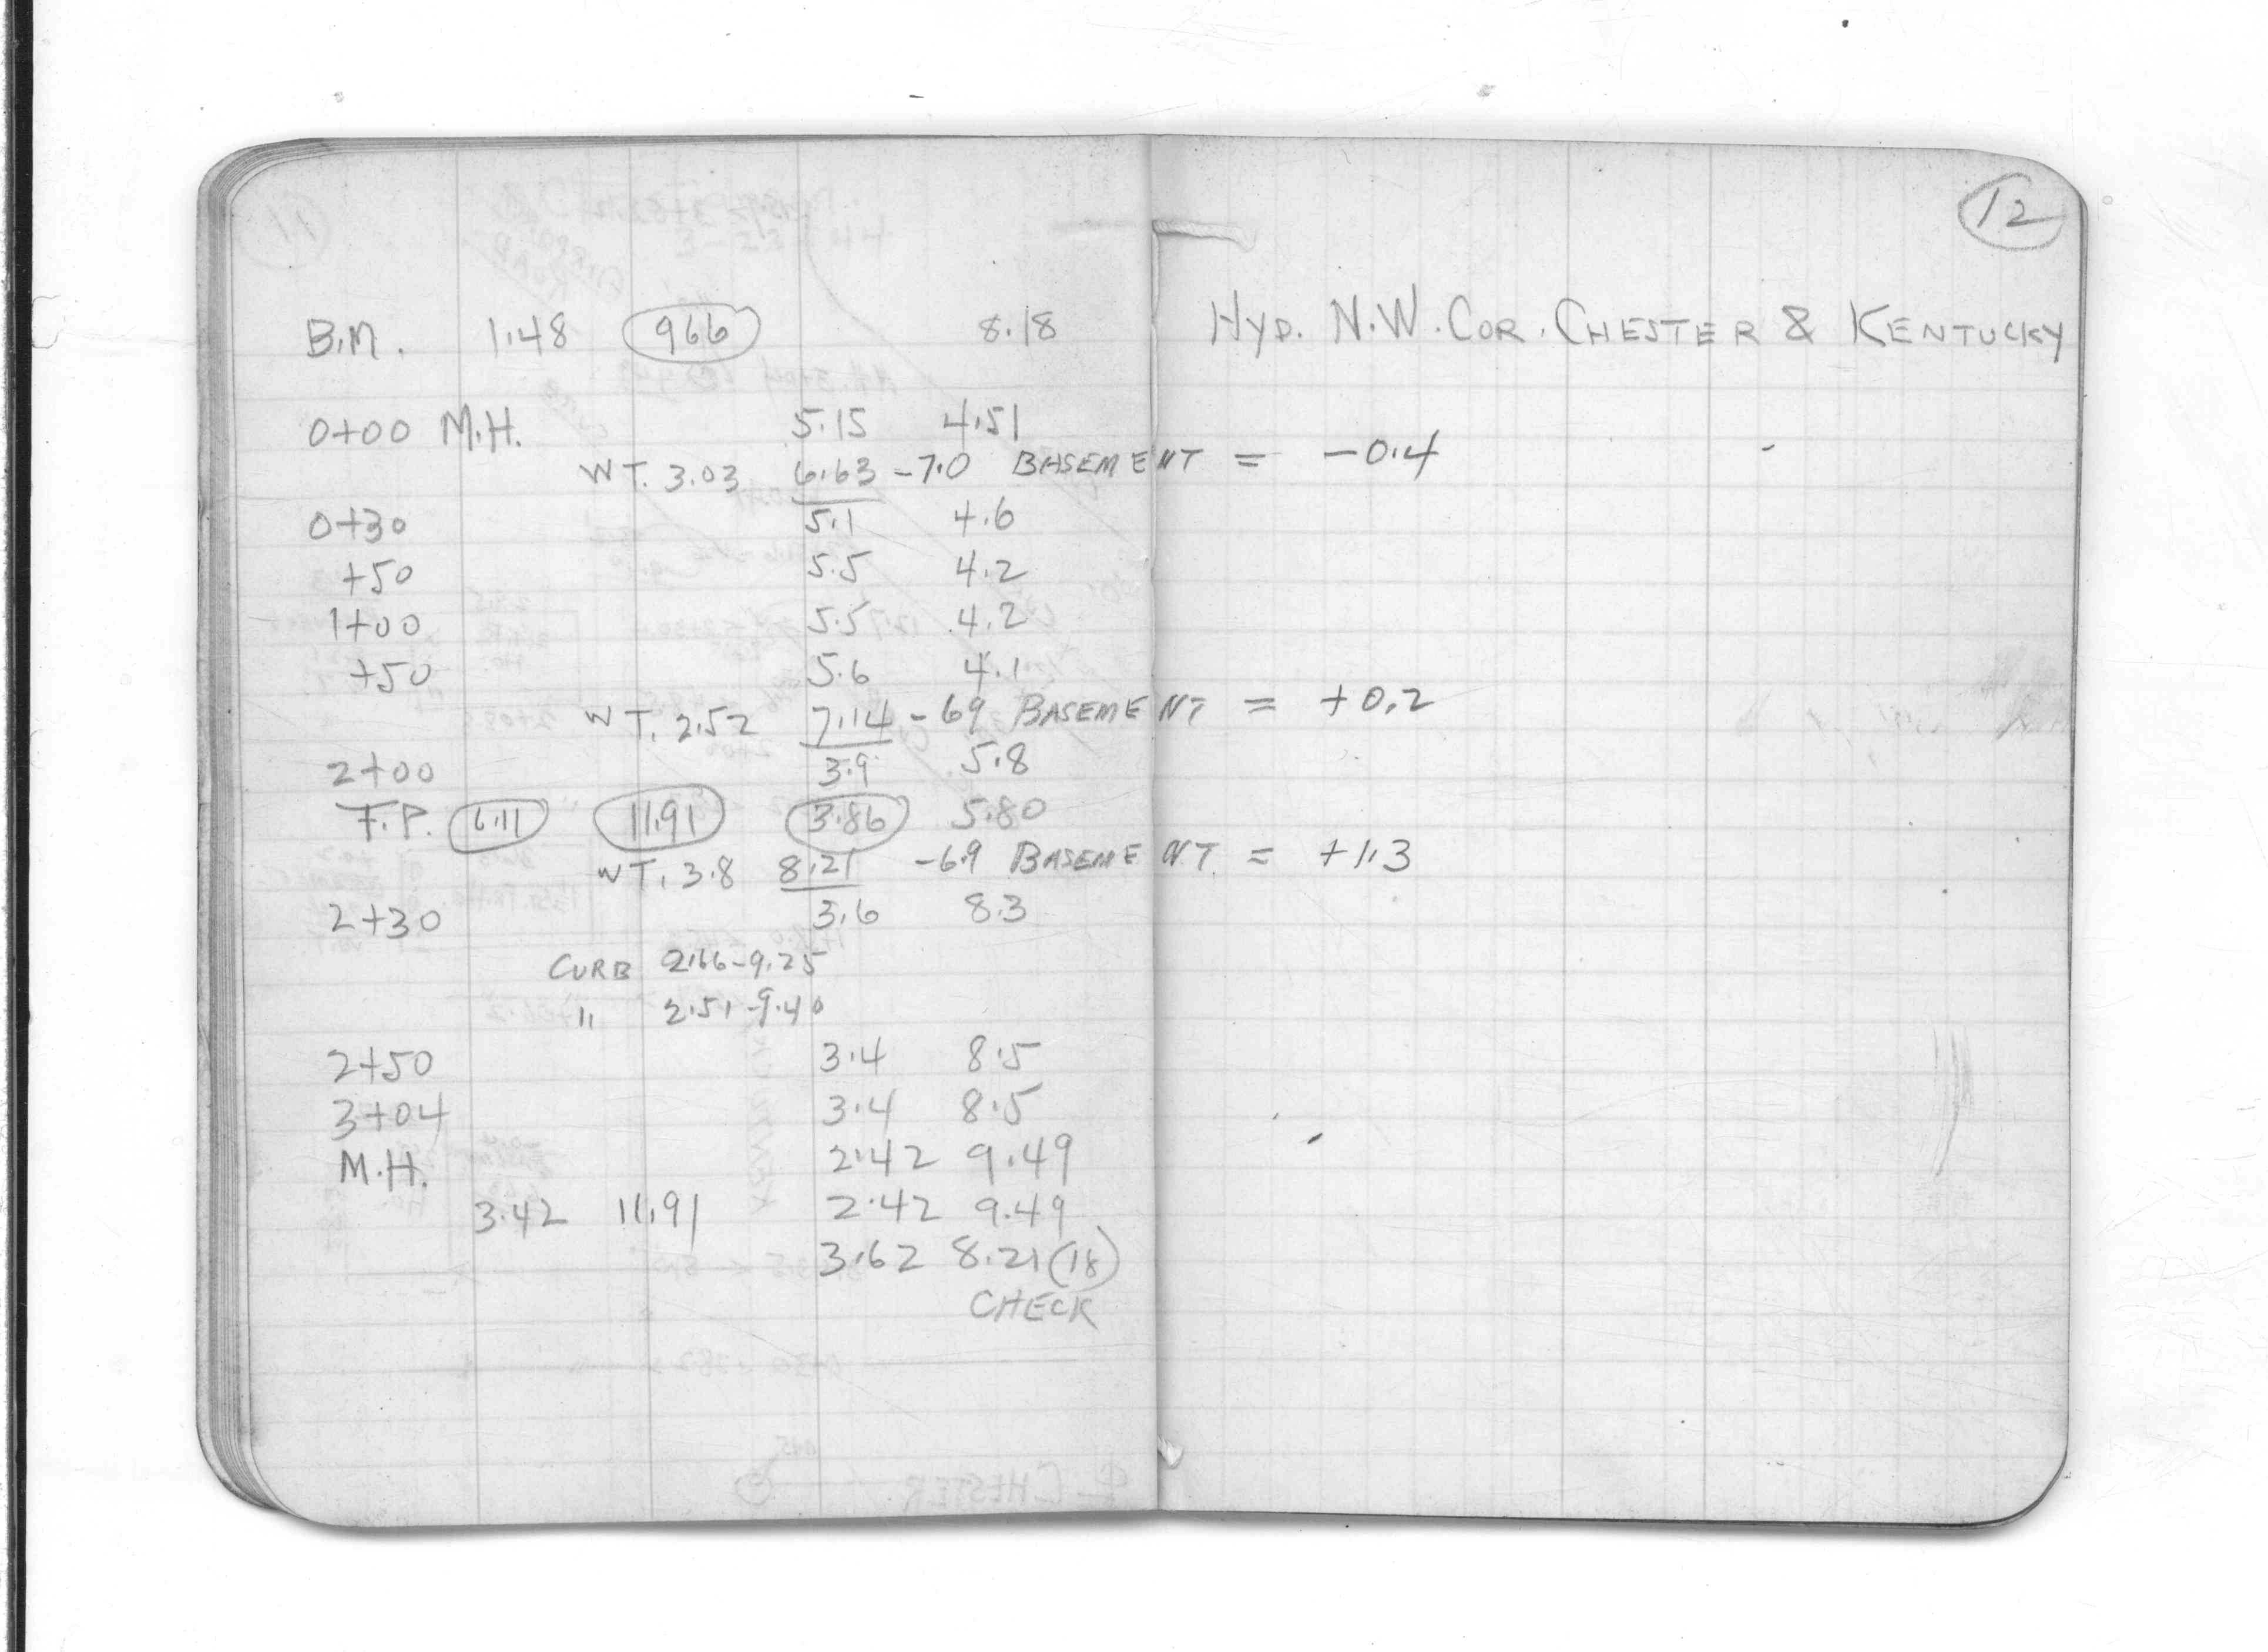 12
B.M. 1.48 966 8.18 HYD. N.W. COR. CHESTER & KENTUCKY
0+00 M.H. 5.15 4.51
WT. 3.03 6.63 -7.0 BASEMENT = -0.4
0+30 5.1 4.6
+50 5.5 4.2
1+00 5.5 4.2
+50 5.6 4.1
WT. 2.52 7.14 -69 BASEMENT = +0.2
2+00 3.9 5.8
T.P. 6.11 11.91 3.86 5.80
WT. 3.8 8.21 -6.9 BASEMENT = +1.3
2+30 3.6 8.3
CURB 2.66-9.25
" 2.51-9.40
2+50 3.4 8.5
3+04 3.4 8.5
M.H. 2.42 9.49
3.42 11.91 2.42 9.49
3.62 8.21 (18)
CHECK